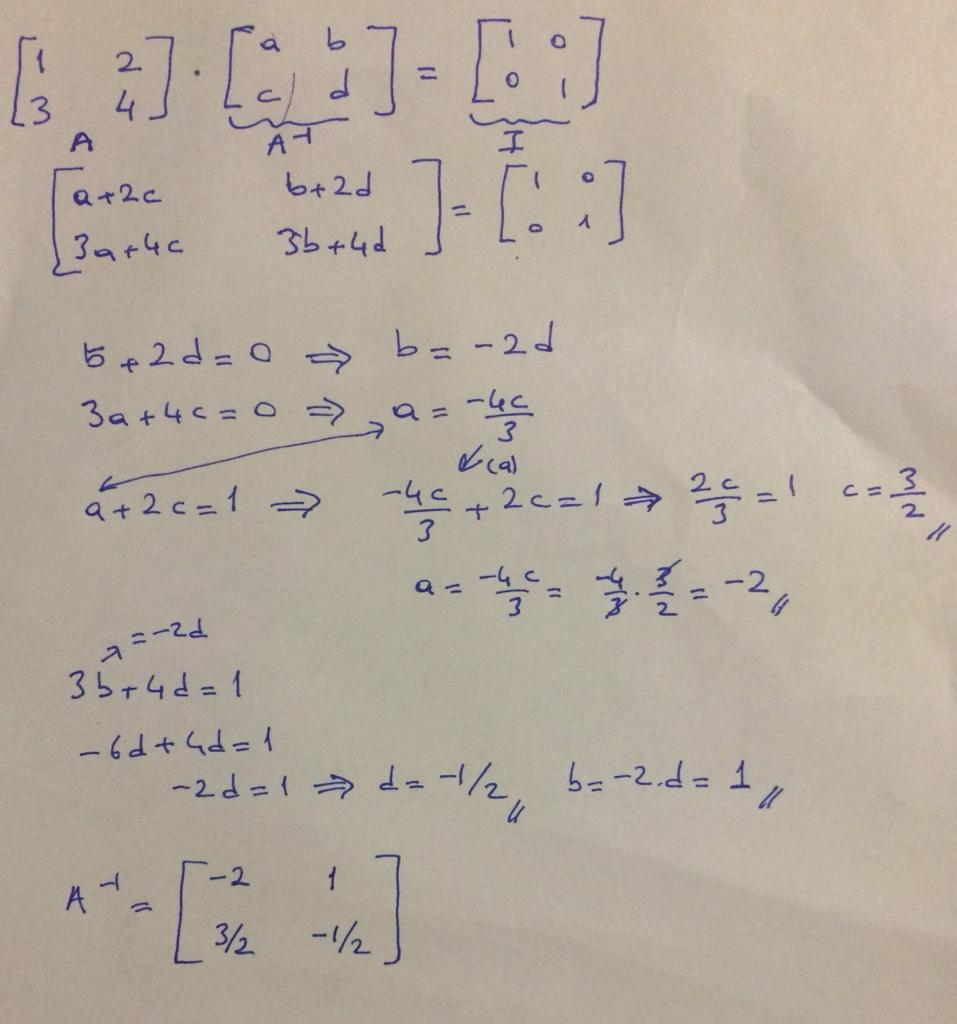 [1 2 3 4] · [a b c d] = [1 0 0 1]
A A⁻¹ I
[a+2c b+2d 3a+4c 3b+4d] = [1 0 0 1]
b+2d=0 ⇒ b=-2d
3a+4c=0 ⇒ a=-4c/3
(a)
a+2c=1 ⇒ -4c/3+2c=1 ⇒ 2c/3=1 c=3/2
a=-4c/3=-4/3·3/2=-2
=-2d
3b+4d=1
-6d+4d=1
-2d=1 ⇒ d=-1/2 b=-2.d=1
A⁻¹=[-2 1 3/2 -1/2]